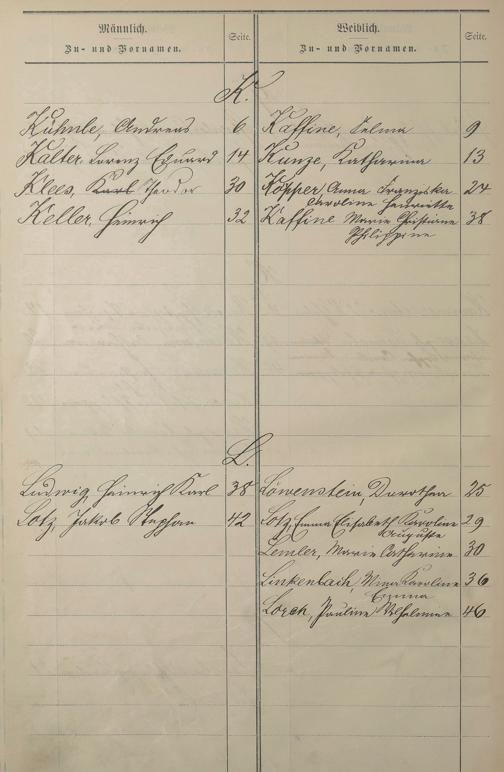 Männlich. Seite. Weiblich. Seite.
Zu- und Vornamen. Zu- und Vornamen.
K.
Kühnle, Andreas 6 Kaffine, Selma 9
Kalter, Lorenz Eduard 14 Kunze, Katharina 13
Klees, Karl Theodor 30 Köpper Anna Franziska 24
Caroline Henriette
Keller, Heinrich 32 Kaffine Marie Christiane 38
Philippine
L.
Ludwig, Heinrich Karl 38 Löwenstein, Dorothea 25
Lotz, Jakob Stephan 42 Lotz, Emma Elisabeth Karoline 29
Auguste
Lemler, Marie Catharine 30
Linkenbach, Mina Karoline 36
Emma
Lorch, Pauline Wilhelmine 46